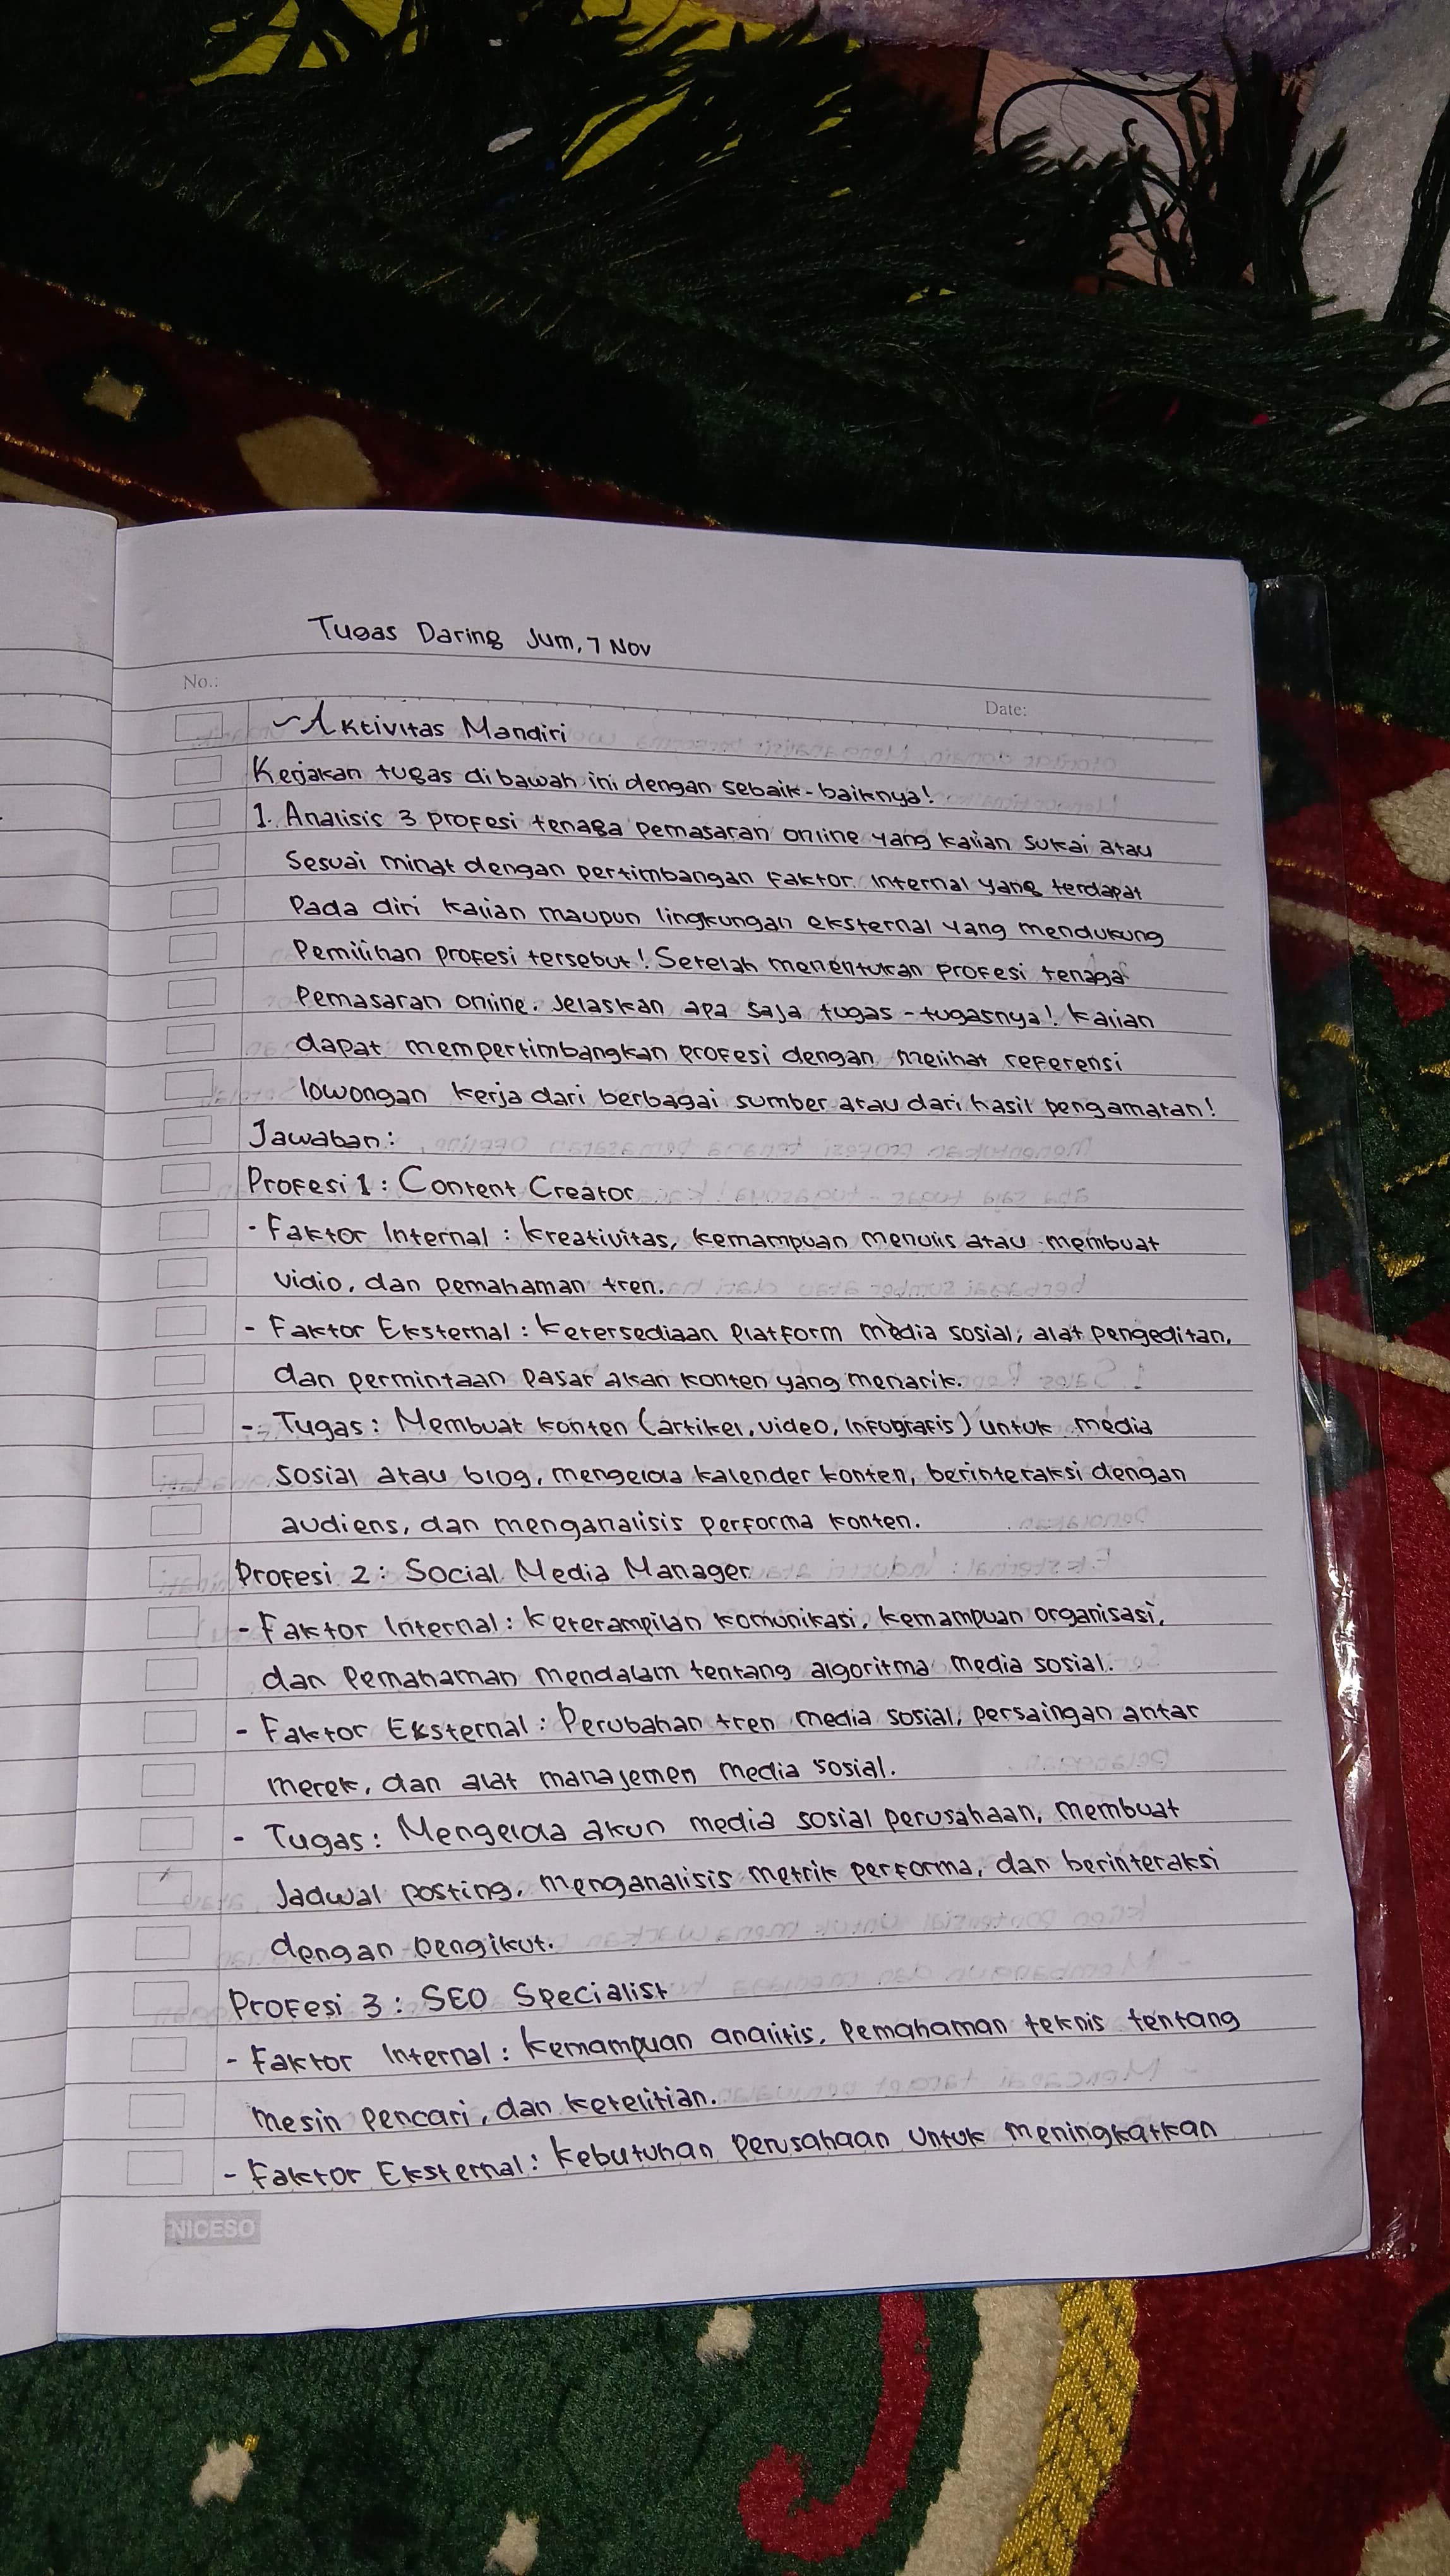 Tugas Daring Jum, 7 Nov
No.:
Date:
Aktivitas Mandiri
Kerjakan tugas dibawah ini dengan sebaik-baiknya!
1. Analisis 3 profesi tenaga pemasaran online yang kalian sukai atau
Sesuai minat dengan pertimbangan faktor internal yang terdapat
Pada diri kalian maupun lingkungan eksternal yang mendukung
Pemilihan profesi tersebut! Setelah menentukan profesi tenaga
Pemasaran online. Jelaskan apa saja tugas-tugasnya! Kalian
dapat mempertimbangkan profesi dengan melihat referensi
lowongan kerja dari berbagai sumber atau dari hasil pengamatan!
Jawaban:
Profesi 1: Content Creator
- Faktor Internal: Kreativitas, kemampuan menulis atau membuat
vidio, dan pemahaman tren.
- Faktor Eksternal: Ketersediaan Platform media sosial, alat pengeditan,
dan permintaan pasar akan konten yang menarik.
- Tugas: Membuat konten (artikel, video, infografis) untuk media
sosial atau blog, mengelola kalender konten, berinteraksi dengan
audiens, dan menganalisis performa konten.
Profesi 2: Social Media Manager
- Faktor Internal: Keterampilan komunikasi, kemampuan organisasi,
dan Pemahaman mendalam tentang algoritma media sosial.
- Faktor Eksternal: Perubahan tren media sosial, persaingan antar
merek, dan alat manajemen media sosial.
- Tugas: Mengelola akun media sosial perusahaan, membuat
Jadwal posting, menganalisis metrik performa, dan berinteraksi
dengan pengikut.
Profesi 3: SEO Specialist
- Faktor Internal: Kemampuan analitis, Pemahaman teknis tentang
mesin pencari, dan ketelitian.
- Faktor Eksternal: Kebutuhan Perusahaan untuk meningkatkan
NICESO